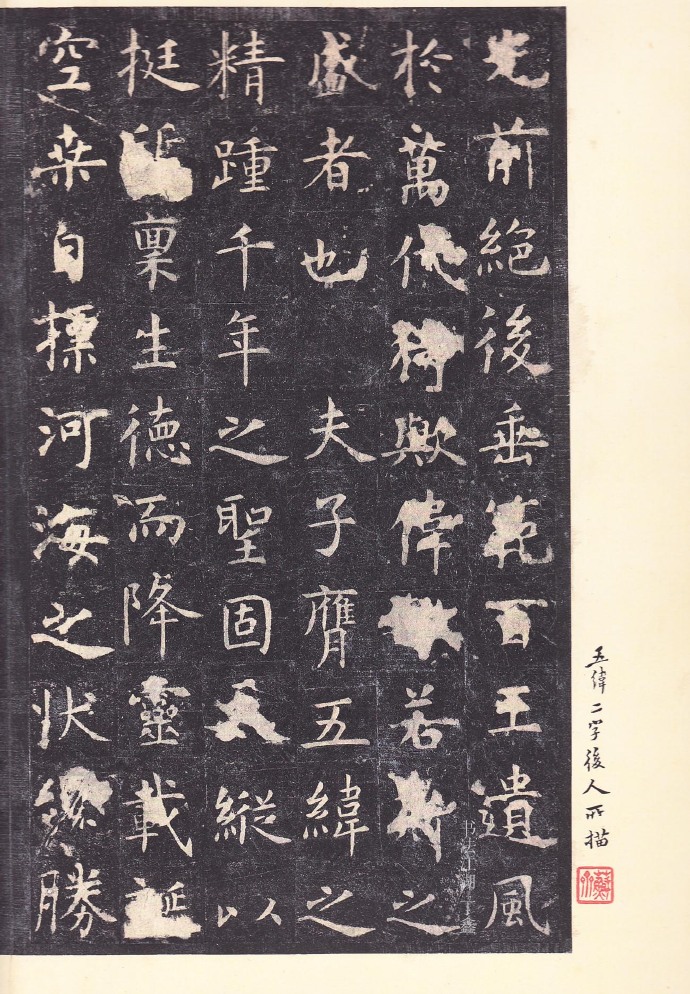 五緯二字後人所描
光前絕後垂範百王遺風
於萬代猗歟偉若斯之
盛者也 夫子膺五緯之
精踵千年之聖固天縱以
挺質稟生德而降靈載誕
空桑自標河海之狀纔勝
书法江湖 丁鑫